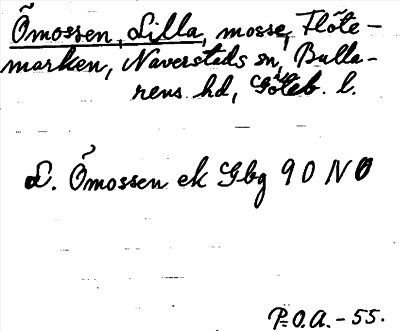 Õmossen, Lilla, mosse, Flöte-
marken, Naverstads sn, Bulla-
rens hd, Göteb. l.
L. Õmossen ek Gbg 90 NO
P.O.A. - 55.